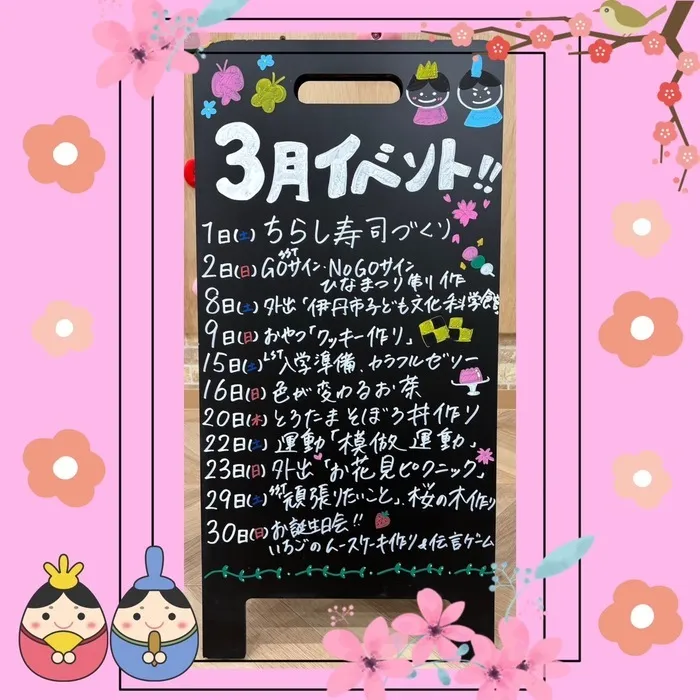 3月イベント!!
1日(土) ちらし寿司づくり
2日(日) SST GOサイン・NO GOサイン
ひなまつり制作
8日(土) 外出「伊丹市子ども文化科学館
9日(日) おやつ「クッキー作り」
15日(土) LST 入学準備、カラフルゼリー
16日(日) 色が変わるお茶
20日(木) とろたまそぼろ丼作り
22日(土) 運動「模倣運動」
23日(日) 外出「お花見ピクニック」
29日(土) SST「頑張りたいこと」、桜の木作り
30日(日) お誕生日会!!
いちごのムースケーキ作り&伝言ゲーム